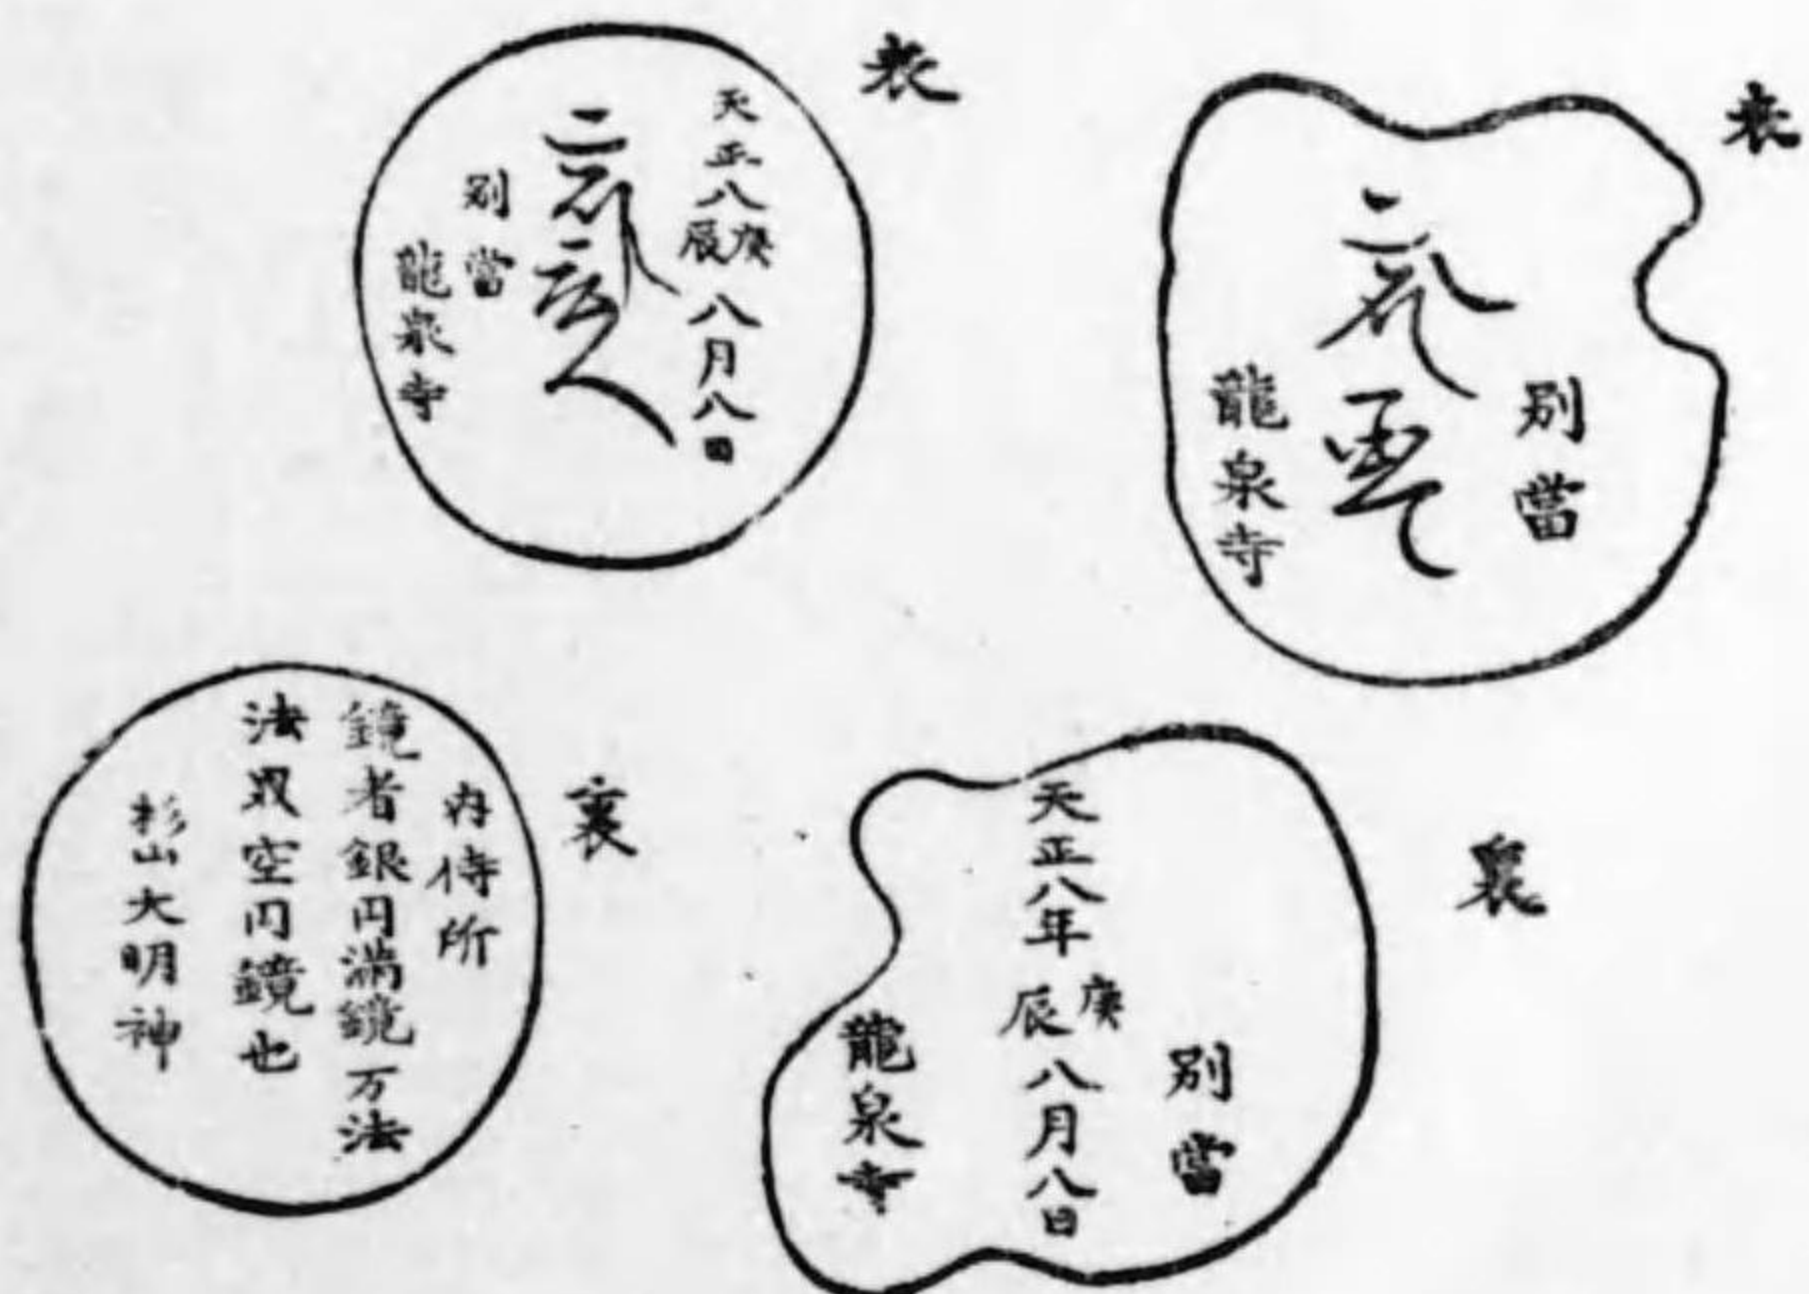 表
別當
龍泉寺
裏
別當
天正八年庚辰八月八日
龍泉寺
表
天正八庚辰八月八日
別當
龍泉寺
裏
内侍所
鏡者銀円満鏡万法
法界空円鏡也
杉山大明神